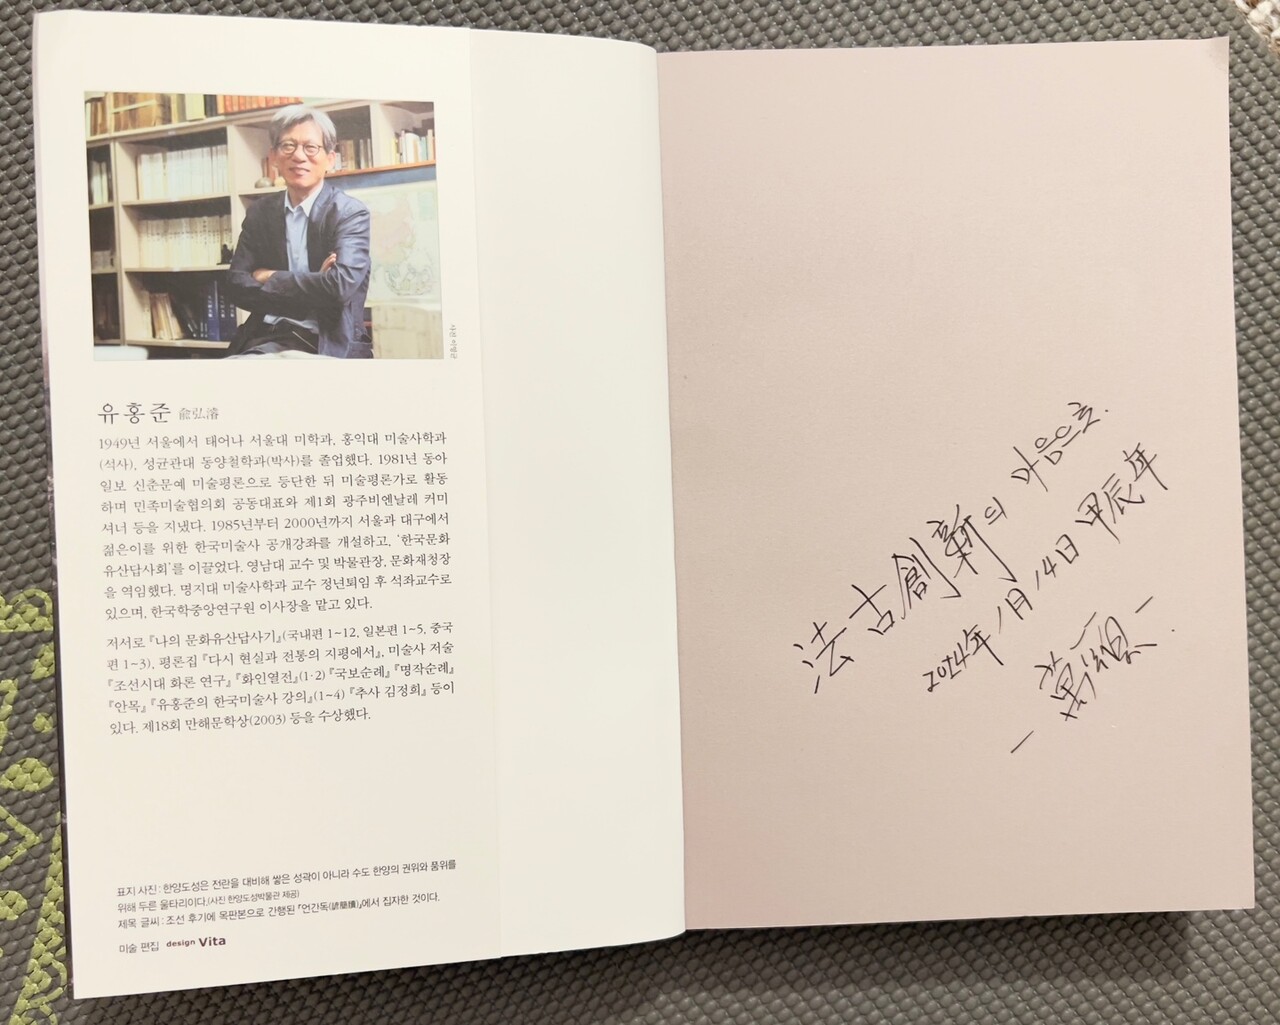 사진 이병률
유홍준 兪弘濬
1949년 서울에서 태어나 서울대 미학과, 홍익대 미술사학과
(석사), 성균관대 동양철학과(박사)를 졸업했다. 1981년 동아
일보 신춘문예 미술평론으로 등단한 뒤 미술평론가로 활동
하며 민족미술협의회 공동대표와 제1회 광주비엔날레 커미
셔너 등을 지냈다. 1985년부터 2000년까지 서울과 대구에서
젊은이를 위한 한국미술사 공개강좌를 개설하고, ‘한국문화
유산답사회’를 이끌었다. 영남대 교수 및 박물관장, 문화재청장
을 역임했다. 명지대 미술사학과 교수 정년퇴임 후 석좌교수로
있으며, 한국학중앙연구원 이사장을 맡고 있다.
저서로 『나의 문화유산답사기』(국내편 1~12, 일본편 1~5, 중국
편 1~3), 평론집 『다시 현실과 전통의 지평에서』, 미술사 저술
『조선시대 화론 연구』 『화인열전』(1·2) 『국보순례』 『명작순례』
『안목』 『유홍준의 한국미술사 강의』(1~4) 『추사 김정희』 등이
있다. 제18회 만해문학상(2003) 등을 수상했다.
표지 사진 : 한양도성은 전란을 대비해 쌓은 성곽이 아니라 수도 한양의 권위와 품위를
위해 두른 울타리이다.(사진 한양도성박물관 제공)
제목 글씨 : 조선 후기에 목판본으로 간행된 『언간독(諺簡牘)』에서 집자한 것이다.
미술 편집 design Vita
法古創新의 마음으로.
2024年 1月 14日 甲辰年